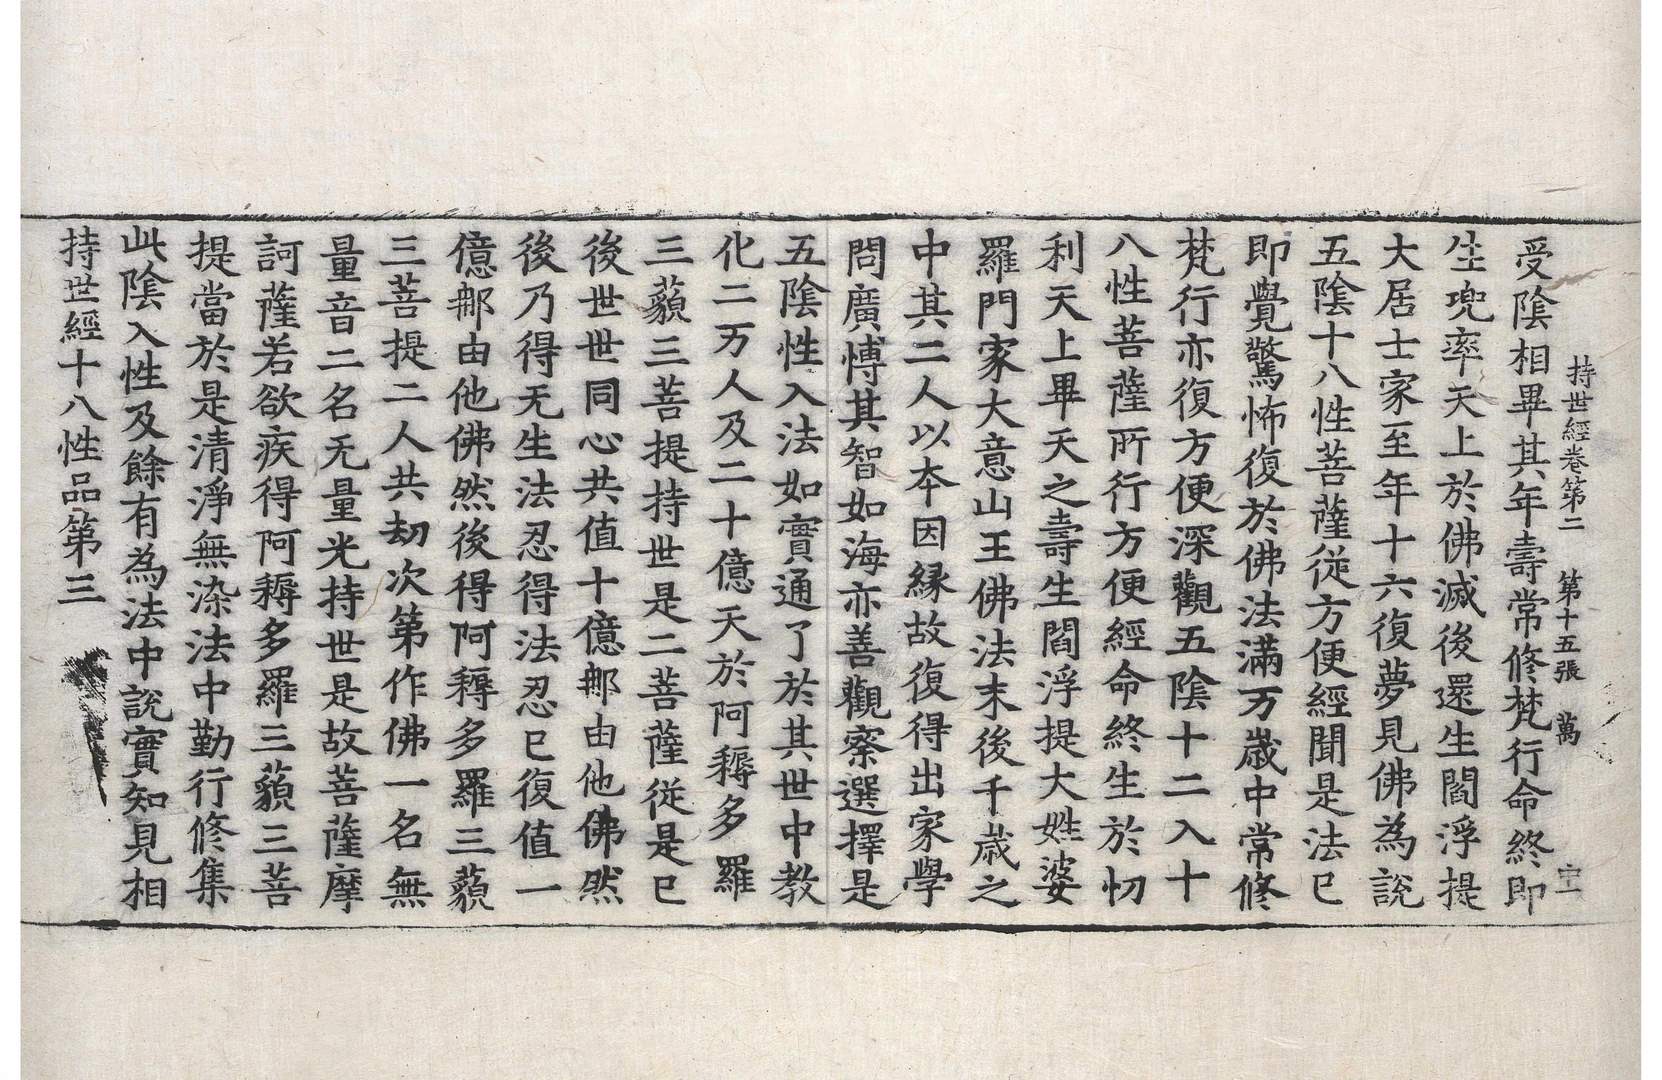 持世經卷第二 第十五張 萬
受陰相畢其年壽常修梵行命終即
生兜率天上於佛滅後還生閻浮提
大居士家至年十六復夢見佛為說
五陰十八性菩薩從方便經聞是法已
即覺驚怖復於佛法滿万歲中常修
梵行亦復方便深觀五陰十二入十
八性菩薩所行方便經命終生於忉
利天上畢天之壽生閻浮提大姓婆
羅門家大意山王佛法末後千歲之
中其二人以本因緣故復得出家學
問廣愽其智如海亦善觀察選擇是
五陰性入法如實通了於其世中教
化二万人及二十億天於阿耨多羅
三藐三菩提持世是二菩薩從是已
後世世同心共值十億那由他佛然
後乃得无生法忍得法忍已復值一
億那由他佛然後得阿耨多羅三藐
三菩提二人共劫次第作佛一名無
量音二名无量光持世是故菩薩摩
訶薩若欲疾得阿耨多羅三藐三菩
提當於是清淨無染法中勤行修集
此陰入性及餘有為法中說實知見相
持世經十八性品第三